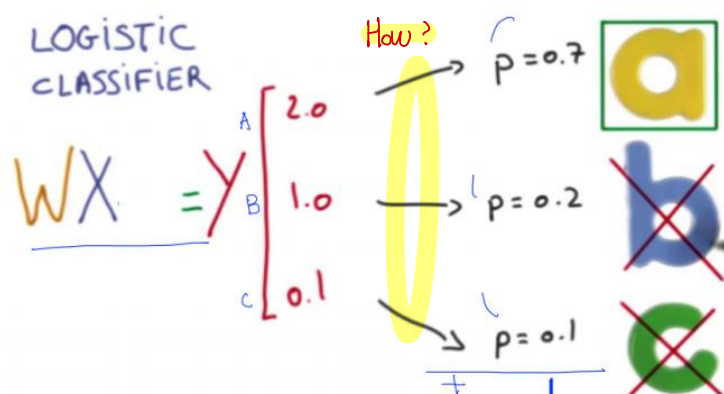 LOGISTIC
CLASSIFIER
How?
WX = Y
A 2.0
B 1.0
C 0.1
p = 0.7
p = 0.2
p = 0.1
+ 1
a
b
c